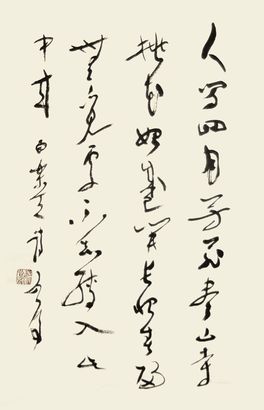 人間四月芳菲盡山寺
桃花始盛開長恨春歸
無覓處不知轉入此
中來 白樂天詩